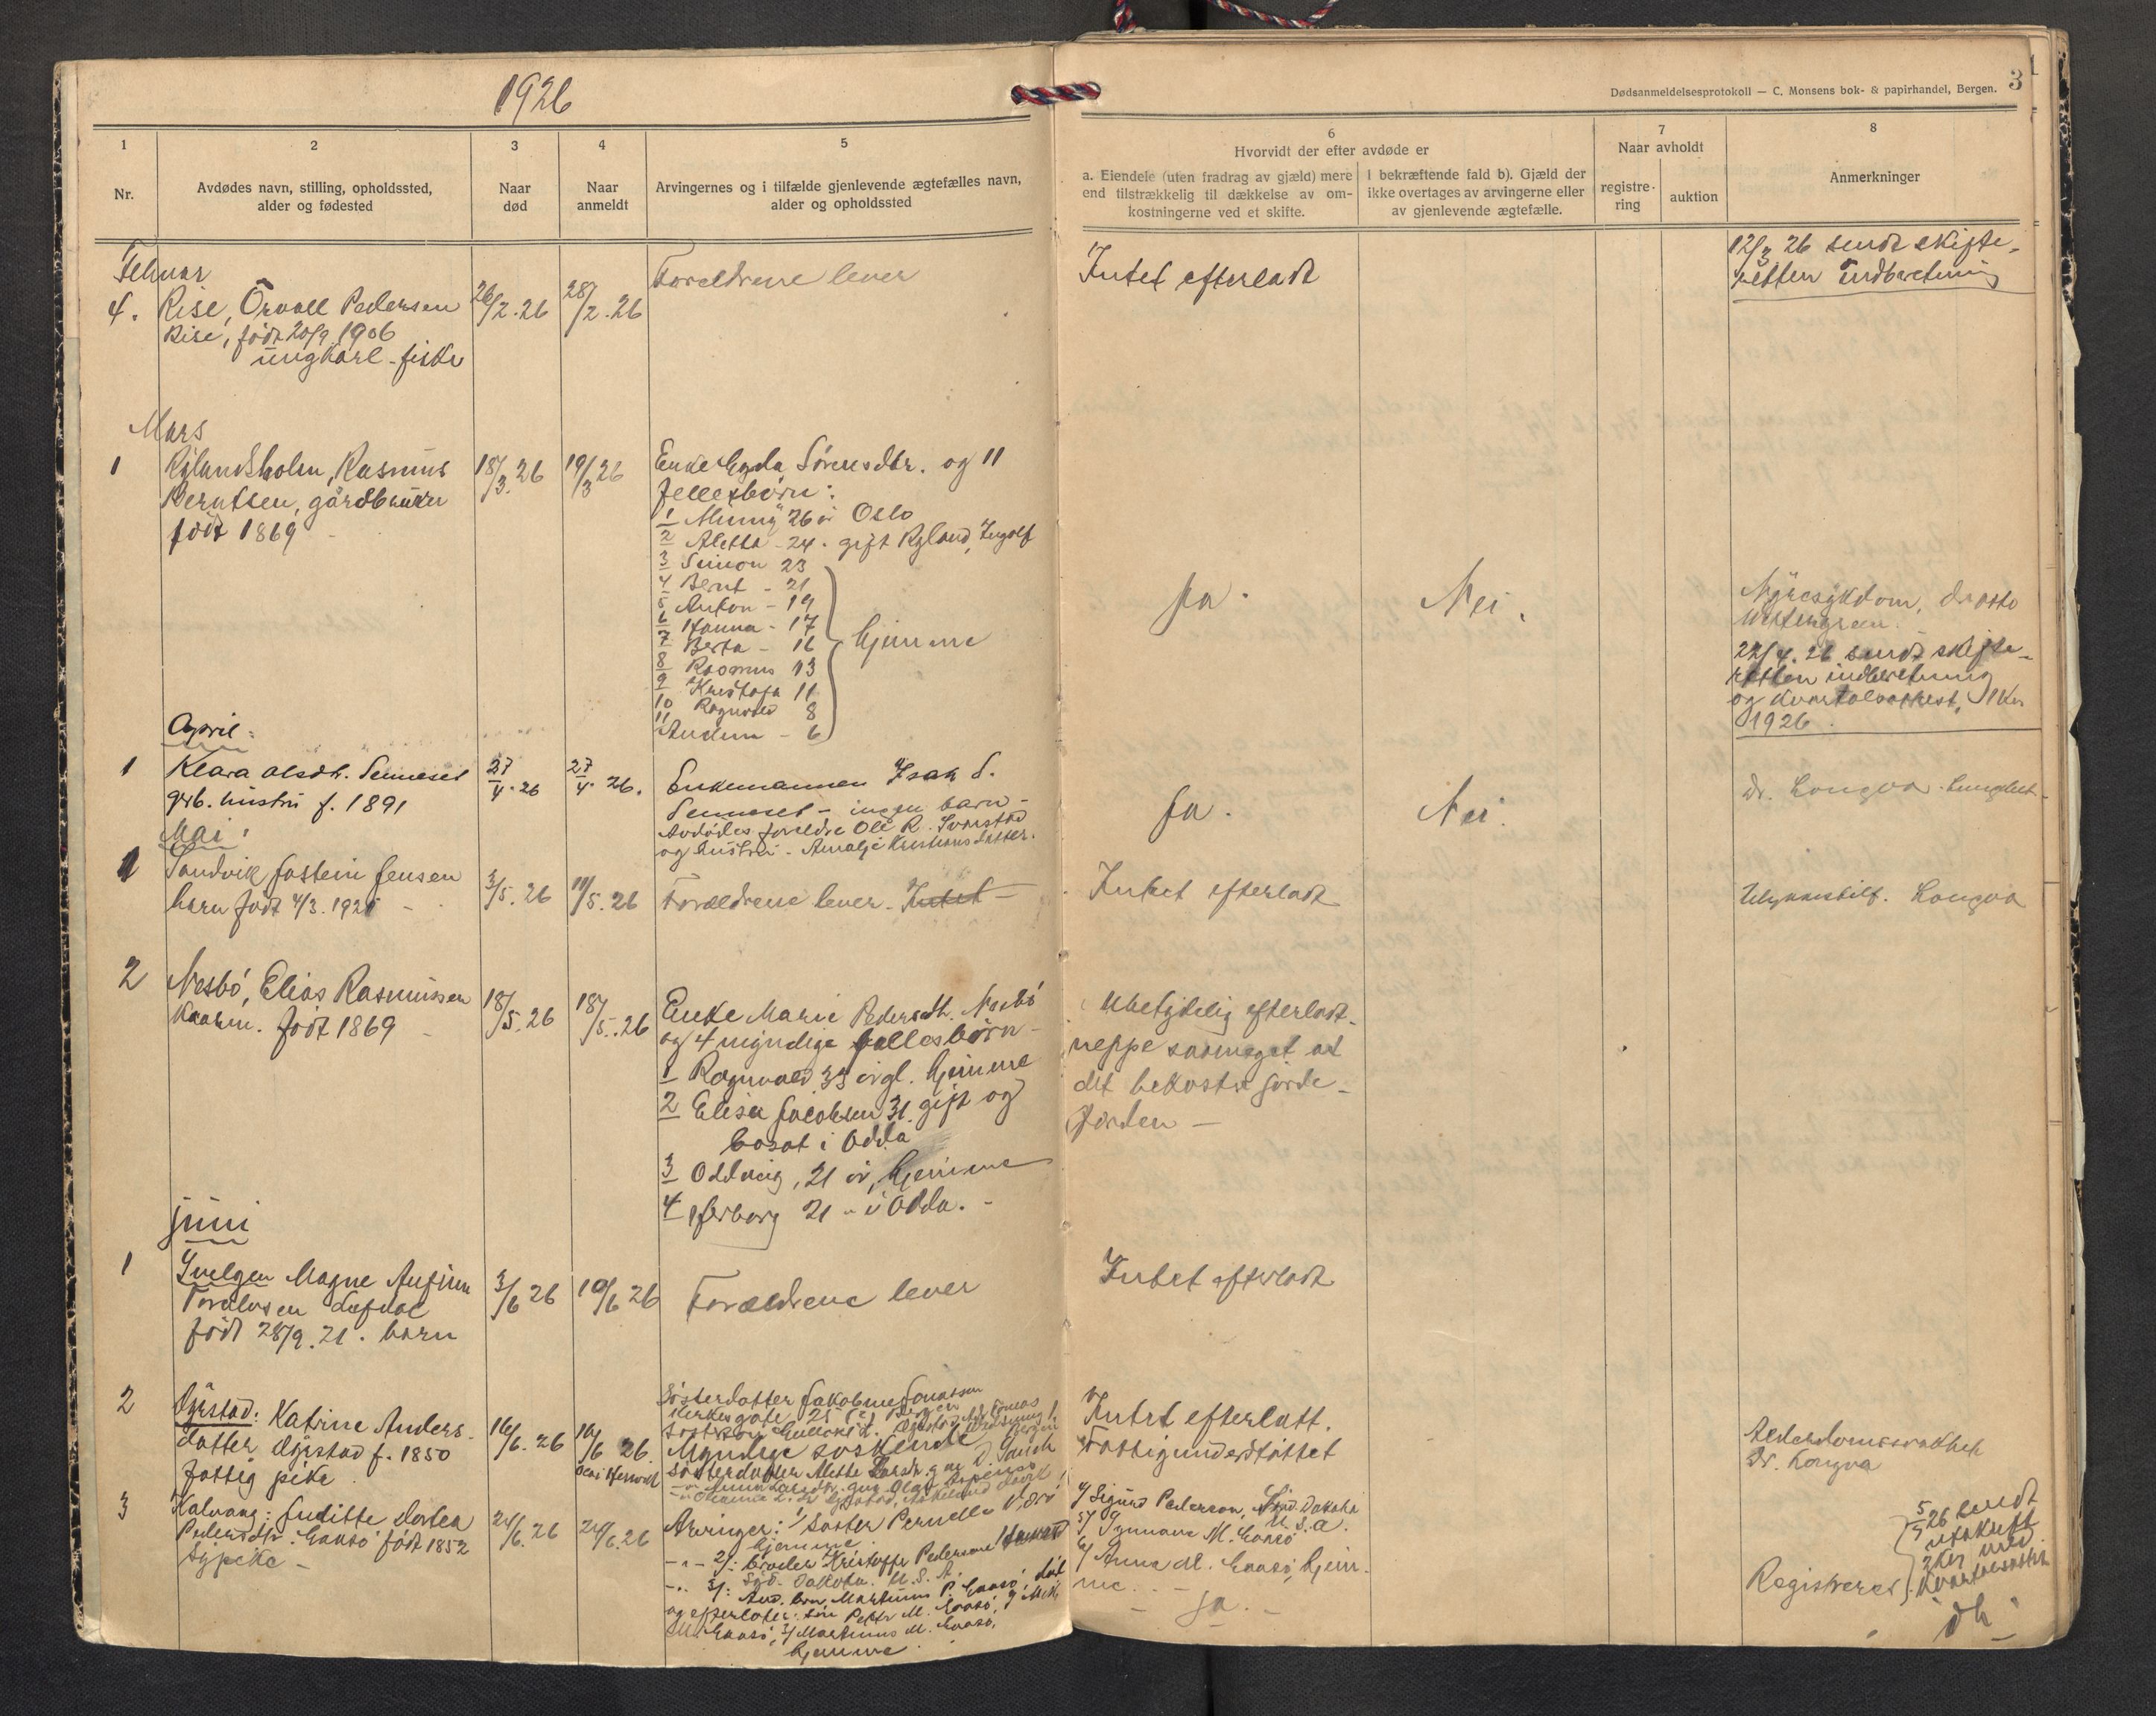 1926
Dødsanmeldelsesprotokoll — C. Monsens bok- & papirhandel, Bergen.
3
1
2
3
4
5
Nr.
Avdødes navn, stilling, opholdssted,
alder og fødested
Naar
død
Naar
anmeldt
Arvingernes og i tilfælde gjenlevende ægtefælles navn,
alder og opholdssted
6
Hvorvidt der efter avdøde er
a. Eiendele (uten fradrag av gjæld) mere
end tilstrækkelig til dækkelse av om-
kostningerne ved et skifte.
I bekræftende fald b). Gjæld der
ikke overtages av arvingerne eller
av gjenlevende ægtefælle.
7
Naar avholdt
registre-
ring
auktion
8
Anmerkninger
Februar
4. Rise, Orvall Pedersen
Rise, født 20/9 1906
ungkarl - fisker
26/2.26
28/2.26
Foreldrene lever
Intet efterladt
12/3 26 sendt skifte-
retten indberetning
Mars
1
Rylandsholm, Rasmus
Berntsen, gårdbruker
født 1869
18/3.26
19/3 26
Enke Sørensdtr. og 11
fellesbørn:
1 26 år Oslo
2 Aletta - 24. gift Ryland, Ingolf
3 Simon 23
4 Bernt - 21
5 Anton - 19
6 Hanna - 17
7 Berta - 16
8 Rasmus 13
9 11
10 Ragnvald 8
11 - 6
hjemme
Ja.
Nei.
Nyresykdom, dr Otto
22/4.26 sendt skifte-
retten indberetning
og kvartalsattest, 1 Kv.
1926.
April:
1
Klara Olsdtr. Senneset
grb. hustru f. 1891
27/4.26
27/4.26.
Enkemannen Isak S.
Senneset - ingen barn -
Avdødes foreldre Ole R. Svarstad
og hustru - Amalje Kristiansdatter.
Ja.
Nei.
Dr. Longva.
Mai:
1
Sandvik Jostein Jensen
barn født 4/3.1925
3/5.26
11/5.26
Forældrene lever - Intet -
Intet efterladt
Ulykkestilf. Longva
2
Nesbø, Elias Rasmussen
Kaarm. født 1869
18/5.26
18/5.26
Enke Marie Pedersdtr. Nesbø
og 4 myndige fellesbörn -
1 Ragnvald 33 år gl. hjemme
2 Elisa Jacobsen 31. gift og
bosat i Odda
3 Oddveig, 21 år, hjemme
4 Herborg 21 - i Odda. -
Ubetydelig efterladt.
neppe saameget at
det bekoster jorde-
færden -
juni
1
Svelgen Magne Anfinn
Toralvsen
født 28/9.21. barn
3/6 26
10/6 26
Forældrene lever
Intet efterladt
2
Øgrstad: Katrine Anders-
datter Øgrstad f. 1850
fattig pike
16/6.26
16/6 26.
Søsterdatter Jakobine Jonassen
Kirkegate 25 Bergen
Myndige søskende
Intet efterlatt.
Fattigunderstøttet
Alderdomssvakhet
Dr. Longva
3
Kalvaag: Juditte Dortea
Pedersdtr. Gaasø født 1852
Sypike -
24/6.26
24/6.26
Arvinger: 1/ Søster Pernelle
hjemme
-"- 2/: broder Kristoffer Pedersen
Syd. Dakota. U.S.A.
-"- 3/: Avd. bror, Martinus P. Gaasø, død
og efterlater: søn Peder M. Gaasø,
M. Gaasø, 3/ Martinus M. Gaasø,
hjemme
4/ Sigurd Pederson, Syd. Dakota
U.S.A.
5/ M. Gaasø
6/ Anna M. Gaasø, hjem-
me. -
- Ja. -
Registreres.
5/7 26 sendt
utskrift
2 Kv. med
kvartalsattest